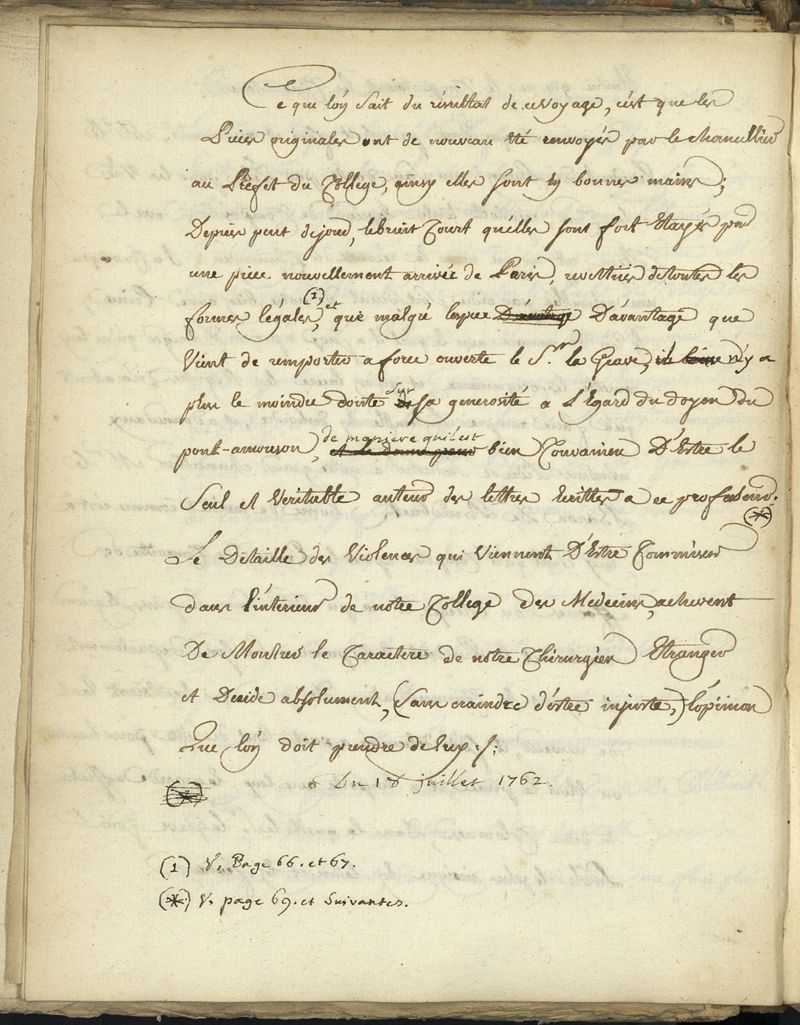 Ce que lón sait du résultat de ce voyage, cést que les
Piéces originales ont de nouveau été envoyés par le chancellier
au Préfet du College, ainsy elles sont en bonnes mains;
Depuis peut de joud, le bruit Court quélles sont fort Etayés par
une piece nouvellement arrivée de Paris, revettües de toutes les
formes légales, (1) et que malgré léspece D'avantage que
Vient de remporter a force ouverte le S.r la Grave, il n'y a
plus le moindre doute sur sa generosité a L'Egard du doyen du
pont-amouson, de maniere quil est bien Convaincu D'Estre le
Seul et Veritable auteur des lettres Ecrittes a ce professeur.
(*)
Le Détaille des Violences qui Viennent D'Estre Commises
dans l'intérieur de notre College des Medecins, achevent
De Montrer le Caractere de notre Chirurgien Etranger
et Decide absolument, (sans craindre d'éstre injuste,) lópinion
Que lón doit prendre de luy ./:
Du 18 juillet 1762.
(*)
(1) V. Page 66. et 67.
(*) V. page 69. et Suivantes.